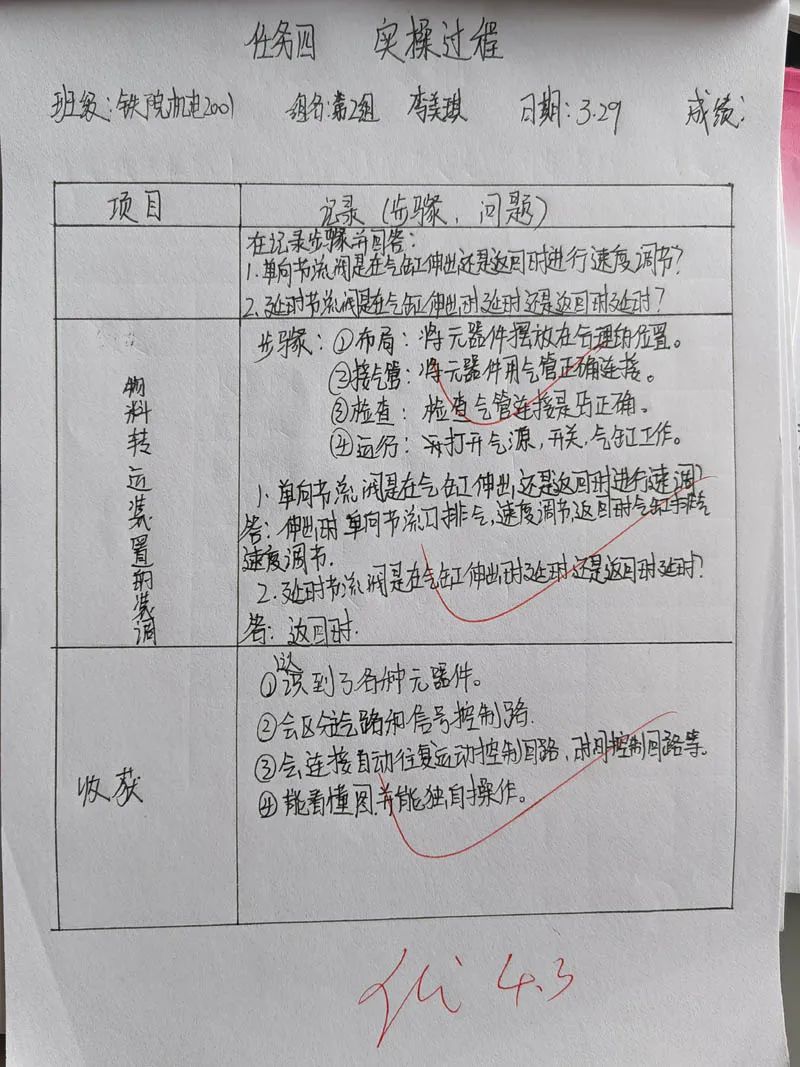 任务四 实操过程
班级:铁院机电2001 组名:第2组 李美琪 日期:3.29 成绩:
项目 记录(步骤、问题)
在记录步骤并回答:
1.单向节流阀是在气缸伸出还是返回时进行速度调节?
2.延时节流阀是在气缸伸出时延时还是返回时延时?
物料转运装置的装调
步骤:①布局:将元器件摆放在合理的位置。
②接气管:将元器件用气管正确连接。
③检查:检查气管连接是否正确。
④运行:打开气源,开关,气缸工作。
1.单向节流阀是在气缸伸出还是返回时进行速调?
答:伸出时单向节流口排气,速度调节,返回时气缸排气
速度调节.
2.延时节流阀是在气缸伸出时延时还是返回时延时?
答:返回时.
收获
①认识到了各种元器件。
②会区分主气路和信号控制路.
③会连接自动往复运动控制回路、时间控制回路等。
④能看懂图并能独自操作。
优 4.3